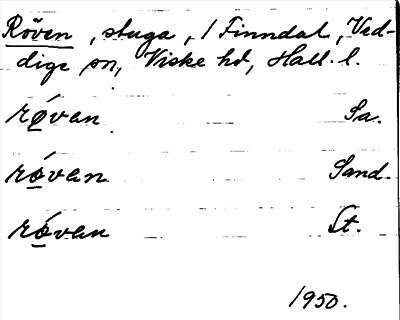 Röven, stuga, / Finndal, Ved-
dige sn, Viske hd, Hall. l.
rǿ̱van Sa.
rǿ̱van Sand.
rǿ̱van St.
1950.